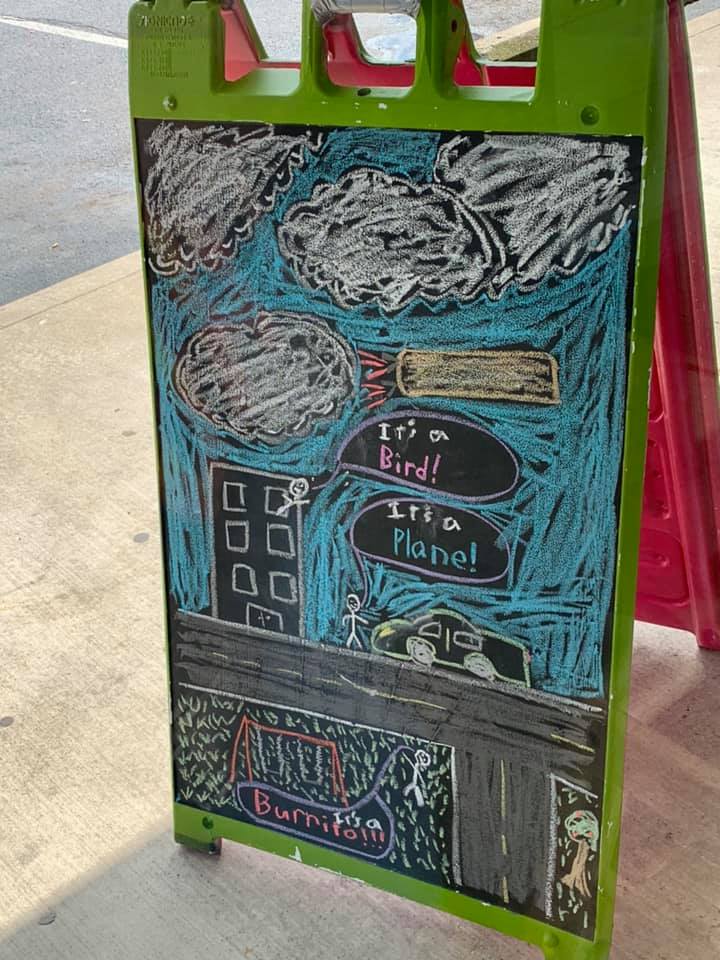 It's a
Bird!
It's a
Plane!
It's a
Burrito!!!